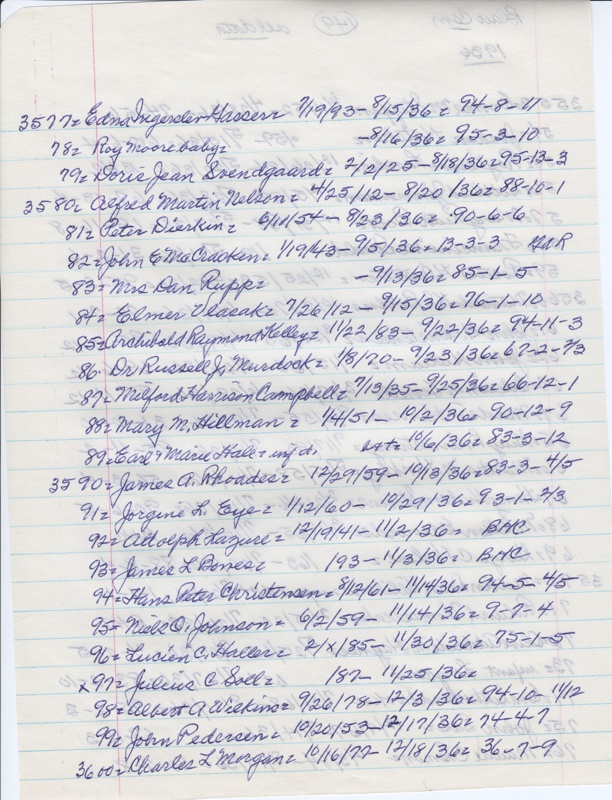 3577= Edna Ingersler Hassen= 7/19/93 - 8/15/36= 94-8-11
78= Roy Moore baby= - 8/16/36= 95-3-10
79= Doris Jean Svendgaard= 2/2/25 - 8/18/36= 95-13-3
3580= Alfred Martin Nelson= 4/25/12 - 8/20/36= 88-10-1
81= Peter Dierkin= 6/11/54 - 8/23/36= 90-6-6
82= John E McCracken= 1/19/43 - 9/5/36= 13-3-3
83= Mrs Dan Rupp= - 9/13/36= 85-1-5
84= Elmer Vlasak= 7/26/12 - 9/15/36= 76-1-10
85= Archibald Raymond Kelley= 11/22/83 - 9/22/36= 94-11-3
86. Dr Russell J. Murdock= 1/8/70 - 9/23/36= 67-2-2/3
87= Milford Harrison Campbell= 7/13/35 - 9/25/36= 66-12-1
88= Mary M. Hillman= 1/4/51 - 10/2/36= 90-12-9
89= Earl & Marie Hale = inf d. 10/6/36= 83-3-12
3590= James A. Rhoades= 12/29/59 - 10/13/36= 83-3-4/5
91= Jorgine L. Eye= 1/12/60 - 10/29/36= 93-1-2/3
92= Adolph Lazure= 12/19/41 - 11/2/36= BAC
93= James L Bones= 193 - 11/3/36= BAC
94= Hans Peter Christensen= 8/12/61 - 11/14/36= 94-5-4/5
95= Niels O. Johnson= 6/2/59 - 11/14/36= 9-7-4
96= Lucien C. Haller= 2/x/85 - 11/20/36= 75-1-5
x 97= Julius C Soll= 187- 11/25/36=
98= Albert A Wilkins= 9/26/78 - 12/3/36= 94-10-11/12
99= John Pedersen= 10/20/53 - 12/17/36= 74-4-7
3600= Charles L Morgan= 10/16/77 - 12/18/36= 36-7-9